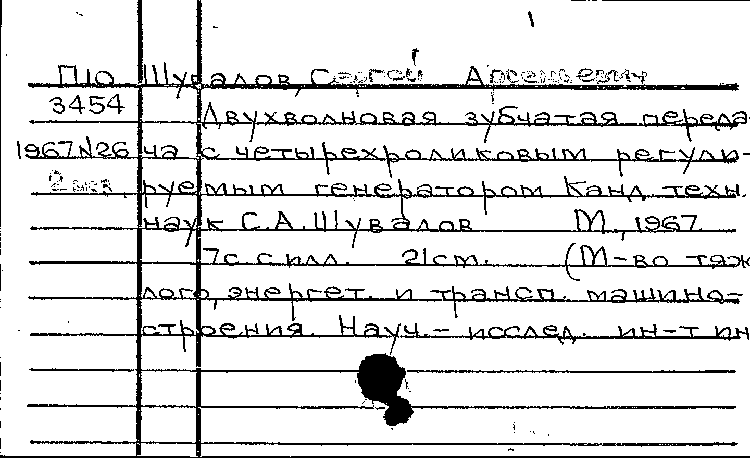 П10 Шувалов, Сергей Арсеньевич
3454 Двухволновая зубчатая переда-
1967№26 ча с четырехроликовым регули-
2 экз. руемым генератором Канд. техн.
наук С.А.Шувалов М., 1967
7с с илл. 21cm. (М-во тяж
лого, энергет. и трансп. машино-
строения. Науч.- исслед. ин-т ин